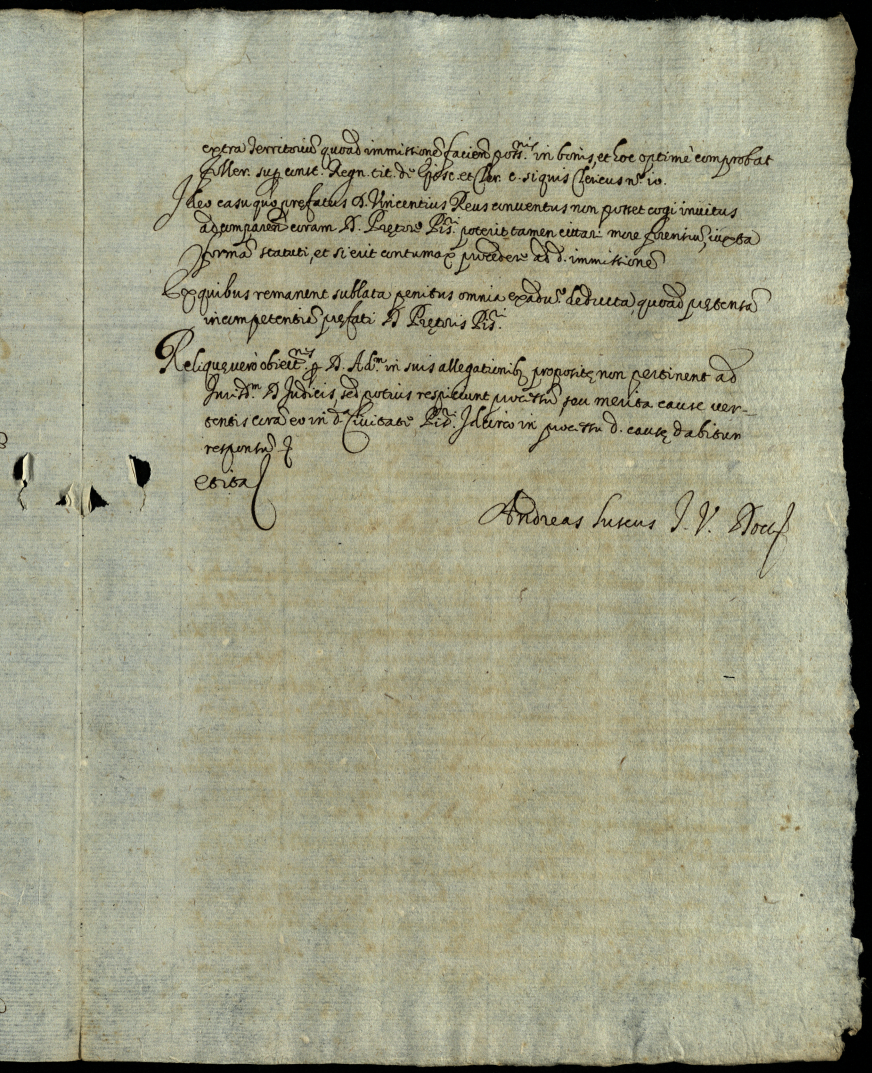 extra Territoriũ quoad immissionẽ faciẽd in bonis, et hoc optimè comprobat
foller. sup const. Regn. tit. de Episc. et Cler. c. si quis Clericus n.º 10.
Ideo casu quo pręfatus D. Vincentius Reus conventus non posset cogi invitus
ad comparend coram D. Prętore Pis.ⁱ poterit tamen citari more forensiũ, iuxta
formã statuti, et si erit contumax procedere ad d. immissionẽ
Ex quibus remanent sublata penitus omnia ex adu.º deducta, quoad pretensã
incompetentiã pręfati D. Prętoris Pis.ⁱ
Reliquę verò obiect.ⁿᵉˢ p D. Ad.ᵐ in suis allegationib. propositę non pertinent ad
Iurisd.ᵐ D. Judicis, sed potius respiciunt processũ seu merita cause ver-
tentis corã eo in d.ª Civitate Pis. Idcirco in processu d. causę dabitur
responsũ
Et ita
Andreas Fuscus J. V. Doct.